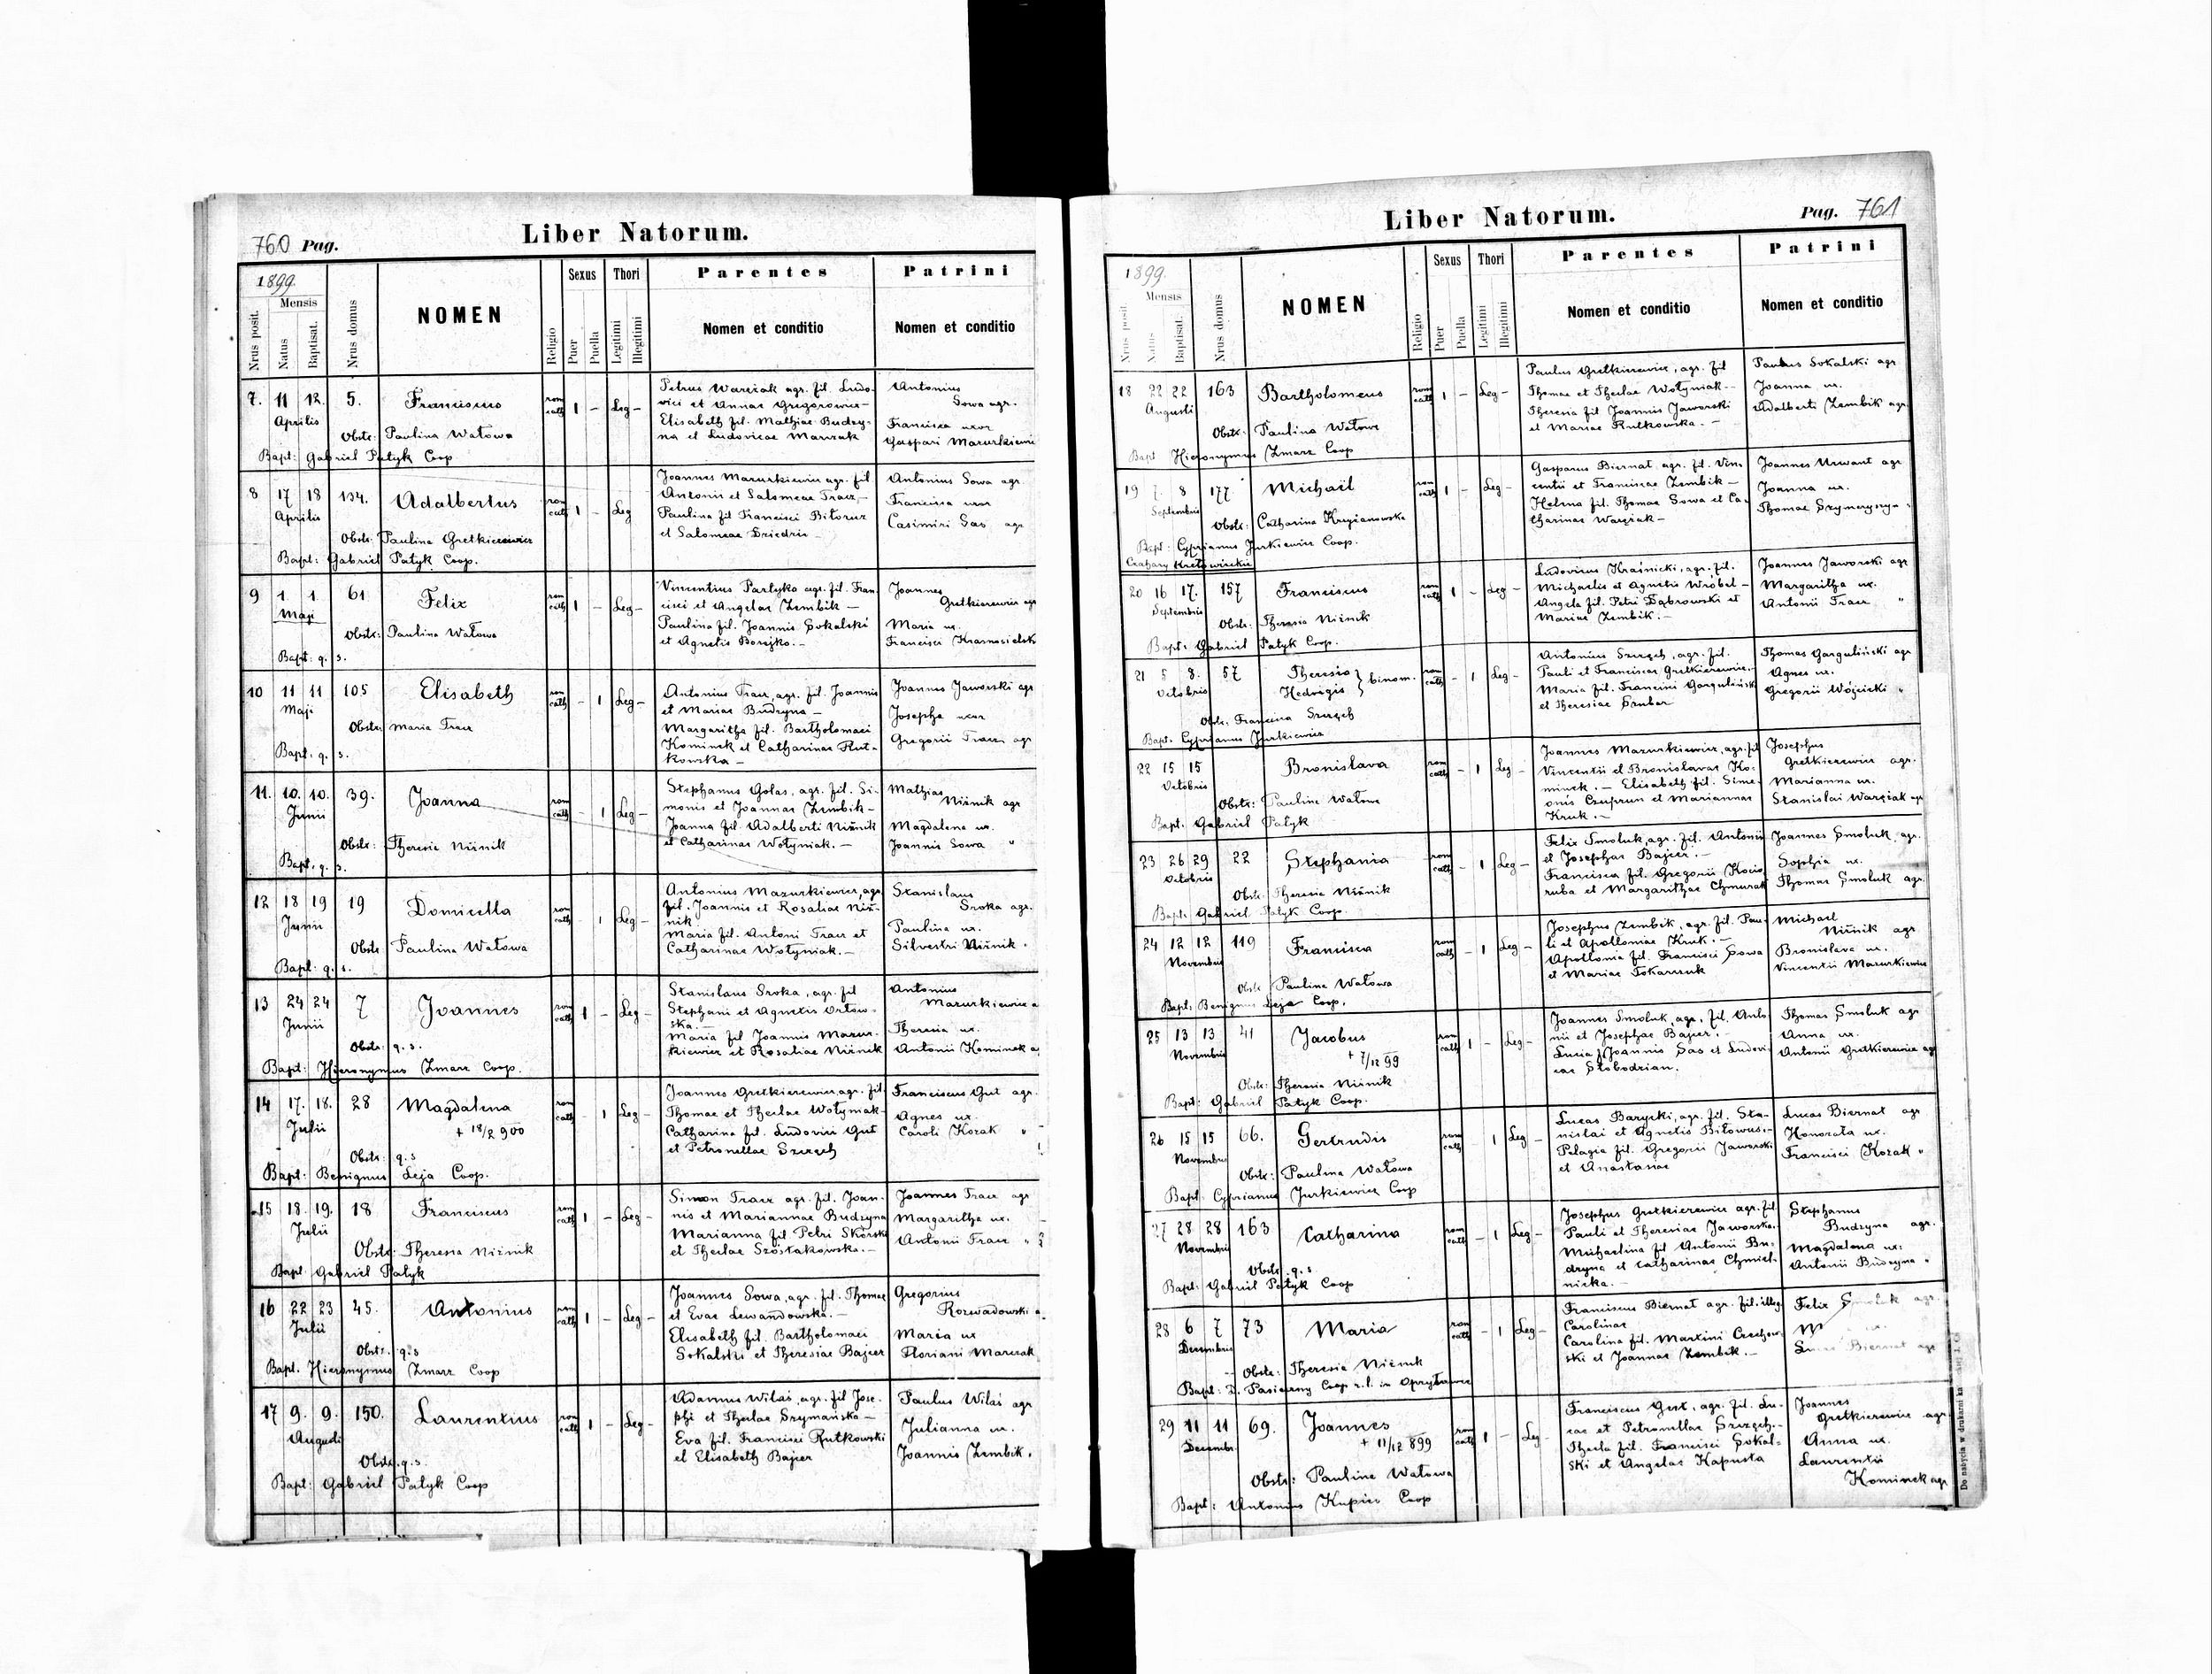 760 Pag.
Liber Natorum.
1899.
Nrus posit.
Mensis
Natus
Baptisat.
Nrus domus
NOMEN
Religio
Sexus
Puer
Puella
Thori
Legitimi
Illegitimi
Parentes
Nomen et conditio
Patrini
Nomen et conditio
7. 11 12. 5. Franciscus rom cath 1 – Leg –
Aprilis
Petrus Warciak agr. fil. Ludo-
vici et Annae Gregorowicz –
Elisabeth fil. Mathiae Budzy-
na et Ludovicae Marczak
Antonius
Sowa agr.
Francisca uxor
Gaspari Mazurkiewicz
Obstr: Paulina Watowa
Bapt: Gabriel Patyk Coop
8 17 18 134. Adalbertus rom cath 1 – Leg
Aprilis
Joannes Mazurkiewicz agr. fil
Antonii et Salomeae Tracz –
Paulina fil Francisci
et Salomeae
Antonius Sowa agr.
Francisca uxor
Casimiri Sas agr
Obstr: Paulina Gretkiewicz
Bapt: Gabriel Patyk Coop.
9 1. 1. 61 Felix rom cath 1 – Leg –
Maji
Vincentius Partyka agr. fil. Fran-
cisci et Angelae Zembik –
Paulina fil. Joannis Sokalski
et Agnetis
Joannes
Gretkierewicz agr
Maria ux.
Francisci Krasnosielsk
Obstr: Paulina Watowa
Bapt: q. s.
10 11 11 105 Elisabeth rom cath – 1 Leg –
Maji
Antonius Tracz, agr. fil. Joannis
et Mariae Budzyna –
Margaritha fil. Bartholomaei
Kominek et Catharinae Rut-
kowska –
Joannes Jaworski agr
Josepha uxor
Gregorii Tracz agr
Obstr: Maria Tracz
Bapt. q. s.
11. 10. 10. 39. Joanna rom cath – 1 Leg –
Junii
Stephanus Golas, agr. fil. Si-
monis et Joannae Zembik –
Joanna fil. Adalberti Niźnik
et Catharinae Wołyniak. –
Mathias
Niźnik agr
Magdalena ux.
Joannis Sowa "
Obstr: Theresia Niźnik
Bapt. q. s.
12 18 19 19 Domicella rom cath – 1 Leg –
Junii
Antonius Mazurkiewicz, agr.
fil. Joannis et Rosaliae Niź-
nik
Maria fil. Antoni Tracz et
Catharinae Wołyniak. –
Stanislaus
Sroka agr.
Paulina ux.
Silvestri Niźnik .
Obstr Paulina Watowa
Bapt: q. s.
13 24 24 7 Joannes rom cath 1 – Leg –
Junii
Stanislaus Sroka, agr. fil
Stephani et Agnetis Ortow-
ska. –
Maria fil Joannis Mazur-
kiewicz et Rosaliae Niźnik
Antonius
Mazurkiewicz a
Theresia ux.
Antonii Kominek a
Obstr: q. s.
Bapt: Hieronymus Zmarz Coop.
14 17. 18. 28 Magdalena rom cath – 1 Leg –
Julii
+ 18/2 900
Joannes Gretkierewicz, agr. fil.
Thomae et Theclae Wołyniak –
Catharina fil. Ludovici Gut
et Petronellae Szczęch
Franciscus Gut agr.
Agnes ux.
Caroli Kozak "
Obstr: q. s
Bapt: Benignus Leja Coop.
15 18. 19. 18 Franciscus rom cath 1 – Leg –
Julii
Simon Tracz agr. fil. Joan-
nis et Mariannae Budzyna
Marianna fil Petri Skórski
et Theclae Szostakowska. –
Joannes Tracz agr
Margaritha ux.
Antonii Tracz "
Obstr: Theresia Niźnik
Bapt: Gabriel Patyk
16 22 23 45. Antonius rom cath 1 – Leg –
Julii
Joannes Sowa, agr. fil. Thomae
et Evae Lewandowska. –
Elisabeth fil. Bartholomaei
Sokalski et Theresiae Bajcer
Gregorius
Rozwadowski a
Maria ux
Floriani Marczak
Obstr. q. s
Bapt. Hieronymus Zmarz Coop
17 9. 9. 150. Laurentius rom cath 1 – Leg –
Augusti
Adamus Wilaś, agr. fil Jose-
phi et Theclae Szymańska –
Eva fil. Francisci Rutkowski
et Elisabeth Bajcer
Paulus Wilaś agr
Julianna ux.
Joannis Zembik .
Obstr. q. s.
Bapt: Gabriel Patyk Coop
Liber Natorum.
Pag. 761
1899.
Nrus posit.
Mensis
Natus
Baptisat.
Nrus domus
NOMEN
Religio
Sexus
Puer
Puella
Thori
Legitimi
Illegitimi
Parentes
Nomen et conditio
Patrini
Nomen et conditio
18 22 22 163 Bartholomeus rom cath 1 – Leg –
Augusti
Paulus Gretkierewicz, agr. fil
Thomae et Theclae Wołyniak –
Theresia fil Joannis Jaworski
et Mariae Rutkowska. –
Paulus Sokalski agr
Joanna ux.
Adalberti Zembik agr.
Obstr: Paulina Watowa
Bapt Hieronymus Zmarz Coop
19 7. 8 177 Michaël rom cath 1 – Leg –
Septembris
Gasparus Biernat, agr. fil. Vin-
centii et Franciscae Zembik –
Helena fil. Thomae Sowa et Ca-
tharinae Warciak –
Joannes agr
Joanna ux.
Thomae
Obstr: Catharina Kryżanowska
Bapt: Cyprianus Jurkiewicz Coop.
20 16 17. 157 Franciscus rom cath 1 – Leg –
Septembris
Ludovicus Kraśnicki, agr. fil.
Michaelis et Agnetis Wróbel –
Angela fil. Petri Dąbrowski et
Mariae Zembik. –
Joannes Jaworski agr
Margaritha ux.
Antonii Tracz "
Obstr: Theresia Niźnik
Bapt: Gabriel Patyk Coop.
21 5 8. 57 Theresia } binom. rom cath – 1 Leg –
Octobris
Hedvigis
Antonius Szczęch, agr. fil.
Pauli et Franciscae Gretkierewicz. –
Maria fil. Francisci Garguliński
et Theresiae
Thomas Garguliński agr
Agnes ux.
Gregorii Wójcicki "
Obstr: Francisca Szczęch
Bapt. Cyprianus Jurkiewicz
22 15 15 Bronislava rom cath – 1 Leg –
Octobris
Joannes Mazurkiewicz, agr. fil
Vincentii et Bronislavae Ko-
minek. – Elisabeth fil. Sime-
onis Czuprun et Mariannae
Kruk. –
Josephus
Gretkierewicz agr.
Marianna ux.
Stanislai Warciak agr
Obstr: Paulina Watowa
Bapt: Gabriel Patyk
23 26 29 22 Stephania rom cath – 1 Leg –
Octobris
Felix Smoluk, agr. fil. Antonii
et Josephae Bajcer. –
Francisca fil. Gregorii Kocio-
ruba et Margarithae Chmurak
Joannes Smoluk agr.
Sophia ux.
Thomae Smoluk agr.
Obstr: Theresia Niźnik
Bapt: Gabriel Patyk Coop.
24 12 12 119 Francisca rom cath – 1 Leg –
Novembris
Josephus Zembik, agr. fil. Pau-
li et Apolloniae Kruk. –
Apollonia fil. Francisci Sowa
et Mariae Tokarczuk
Michael
Niźnik agr
Bronislava ux.
Vincentii Mazurkiewicz
Obstr Paulina Watowa
Bapt: Benignus Leja Coop.
25 13 13 41 Jacobus rom cath 1 – Leg –
Novembris
+ 7/12 99
Joannes Smoluk, agr. fil. Anto-
nii et Josephae Bajcer. –
Lucia f. Joannis Sas et Ludovi-
cae Słobodzian.
Thomas Smoluk agr
Anna ux.
Antonii Gretkierewicz agr
Obstr: Theresia Niźnik
Bapt: Gabriel Patyk Coop.
26 15 15 66. Gertrudis rom cath – 1 Leg –
Novembris
Lucas Barycki, agr. fil. Sta-
nislai et Agnetis
Pelagia fil. Gregorii Jaworski
et Anastasiae
Lucas Biernat agr
Honorata ux.
Francisci Kozak "
Obstr: Paulina Watowa
Bapt: Cyprianus Jurkiewicz Coop
27 28 28 163 Catharina rom cath – 1 Leg –
Novembris
Josephus Gretkierewicz agr. fil
Pauli et Theresiae Jaworska.
Michaelina fil Antonii Bu-
dzyna et Catharinae Chmiel-
nicka. –
Stephanus
Budzyna agr.
Magdalena ux.
Antonii Budzyna "
Obstr. q. s
Bapt: Gabriel Patyk Coop
28 6 7 73 Maria rom cath – 1 Leg –
Decembris
Franciscus Biernat agr. fil. illeg.
Carolinae
Carolina fil. Martini Czechow-
ski et Joannae Zembik. –
Felix Smoluk agr.
Biernat agr
Obstr: Theresia Niźnik
Bapt: Coop r. l. in
29 11 11 69. Joannes rom cath 1 – Leg –
Decembr.
+ 11/12 899
Franciscus Gut, agr. fil. Lu-
cae et Petronellae Szczęch. –
Thecla fil. Francisci Sokal-
ski et Angelae Kapusta
Joannes
Gretkierewicz agr.
Anna ux.
Laurentii
Kominek agr
Obstr: Paulina Watowa
Bapt: Antonius Kupiec Coop